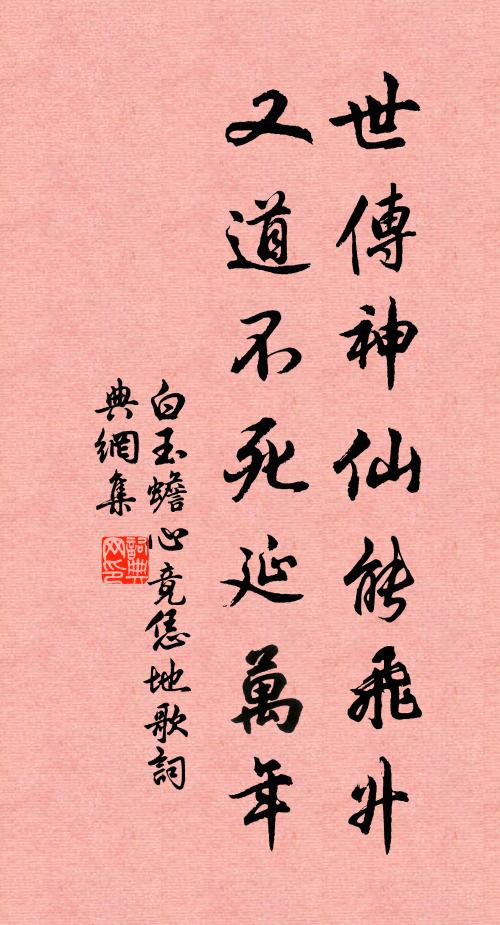 世傳神仙能飛升
又道不死延萬年
白玉蟾心竟恁地歌詞
典網集
詞典網印